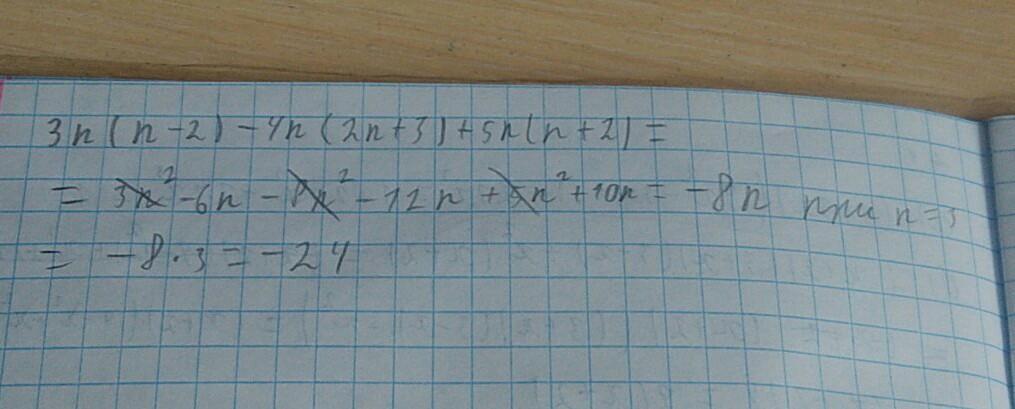 3n(n-2)-4n(2n+3)+5n(n+2)=
= 3n²-6n-8n²-12n+5n²+10n=-8n при n=3
= -8·3=-24